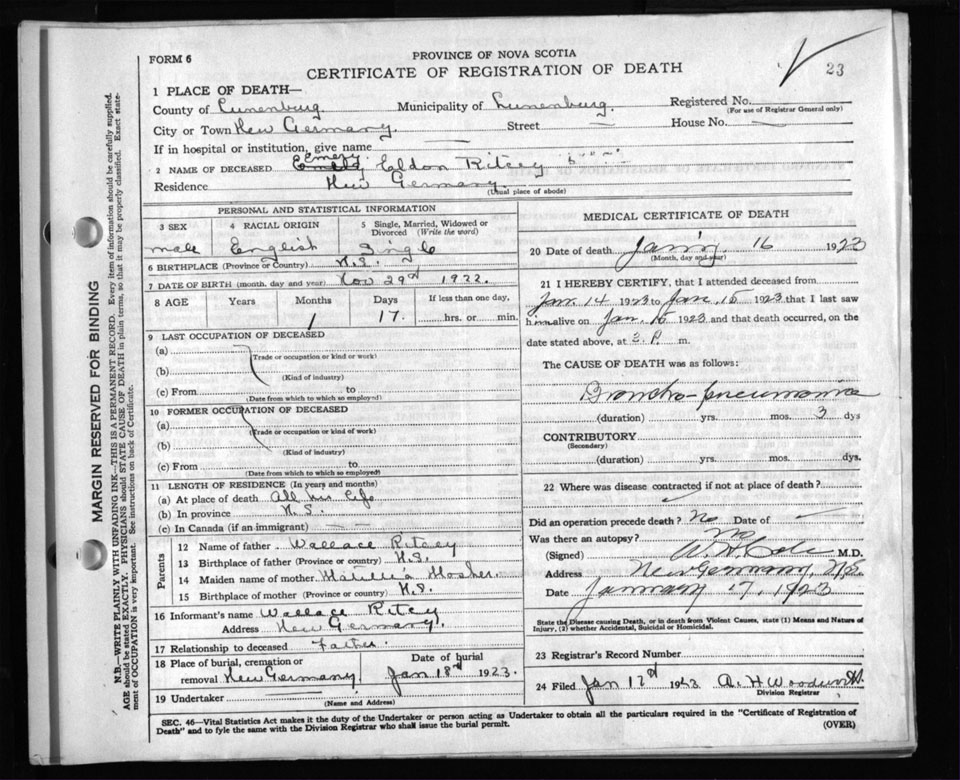 FORM 6
PROVINCE OF NOVA SCOTIA
CERTIFICATE OF REGISTRATION OF DEATH
23
1 PLACE OF DEATH—
County of Lunenburg. Municipality of Lunenburg. Registered No.
(For use of Registrar General only)
City or Town New Germany. Street — House No. —
If in hospital or institution, give name —
2 NAME OF DECEASED Emery Eldon Ritcey
Residence New Germany.
(Usual place of abode)
PERSONAL AND STATISTICAL INFORMATION
3 SEX 4 RACIAL ORIGIN 5 Single, Married, Widowed or Divorced (Write the word)
male English Single
6 BIRTHPLACE (Province or Country) N.S.
7 DATE OF BIRTH (month, day and year) Nov 29d 1922.
8 AGE Years Months Days If less than one day,
1 17. hrs. or min.
9 LAST OCCUPATION OF DECEASED
(a)
(Trade or occupation or kind or work)
(b)
(Kind of industry)
(c) From to
(Date from which to which so employed)
10 FORMER OCCUPATION OF DECEASED
(a)
(Trade or occupation or kind of work)
(b)
(Kind of industry)
(c) From to
(Date from which to which so employed)
11 LENGTH OF RESIDENCE (In years and months)
(a) At place of death All his life
(b) In province N.S.
(c) In Canada (if an immigrant) — —
Parents
12 Name of father Wallace Ritcey
13 Birthplace of father (Province or country) N.S.
14 Maiden name of mother Mosher
15 Birthplace of mother (Province or country) N.S.
16 Informant's name Wallace Ritcey
Address New Germany.
17 Relationship to deceased Father.
18 Place of burial, cremation or removal New Germany Date of burial Jan 18d 1923.
19 Undertaker
(Name and Address)
MEDICAL CERTIFICATE OF DEATH
20 Date of death Jan'y. 16 1923
(Month, day and year)
21 I HEREBY CERTIFY, that I attended deceased from
Jan. 14 1923 to Jan. 15 1923 that I last saw
him alive on Jan. 15 1923 and that death occurred, on the
date stated above, at P. m.
The CAUSE OF DEATH was as follows:
Broncho-pneumonia
(duration) yrs. mos. 3 dys
CONTRIBUTORY
(Secondary)
(duration) yrs. mos. dys.
22 Where was disease contracted if not at place of death?
Did an operation precede death? No Date of
Was there an autopsy? No
(Signed) M.D.
Address New Germany, N.S.
Date January 17, 1923
State the Disease causing Death, or in death from Violent Causes, state (1) Means and Nature of Injury, (2) whether Accidental, Suicidal or Homicidal.
23 Registrar's Record Number
24 Filed Jan 17d 1923 A. H Woodworth.
Division Registrar
SEC. 46—Vital Statistics Act makes it the duty of the Undertaker or person acting as Undertaker to obtain all the particulars required in the "Certificate of Registration of
Death" and to fyle the same with the Division Registrar who shall issue the burial permit.
(OVER)
MARGIN RESERVED FOR BINDING
N.B.—WRITE PLAINLY WITH UNFADING INK—THIS IS A PERMANENT RECORD. Every item of information should be carefully supplied.
AGE should be stated EXACTLY. PHYSICIANS should STATE CAUSE OF DEATH in plain terms, so that it may be properly classified. Exact statement of OCCUPATION is very important. See instructions on back of Certificate.